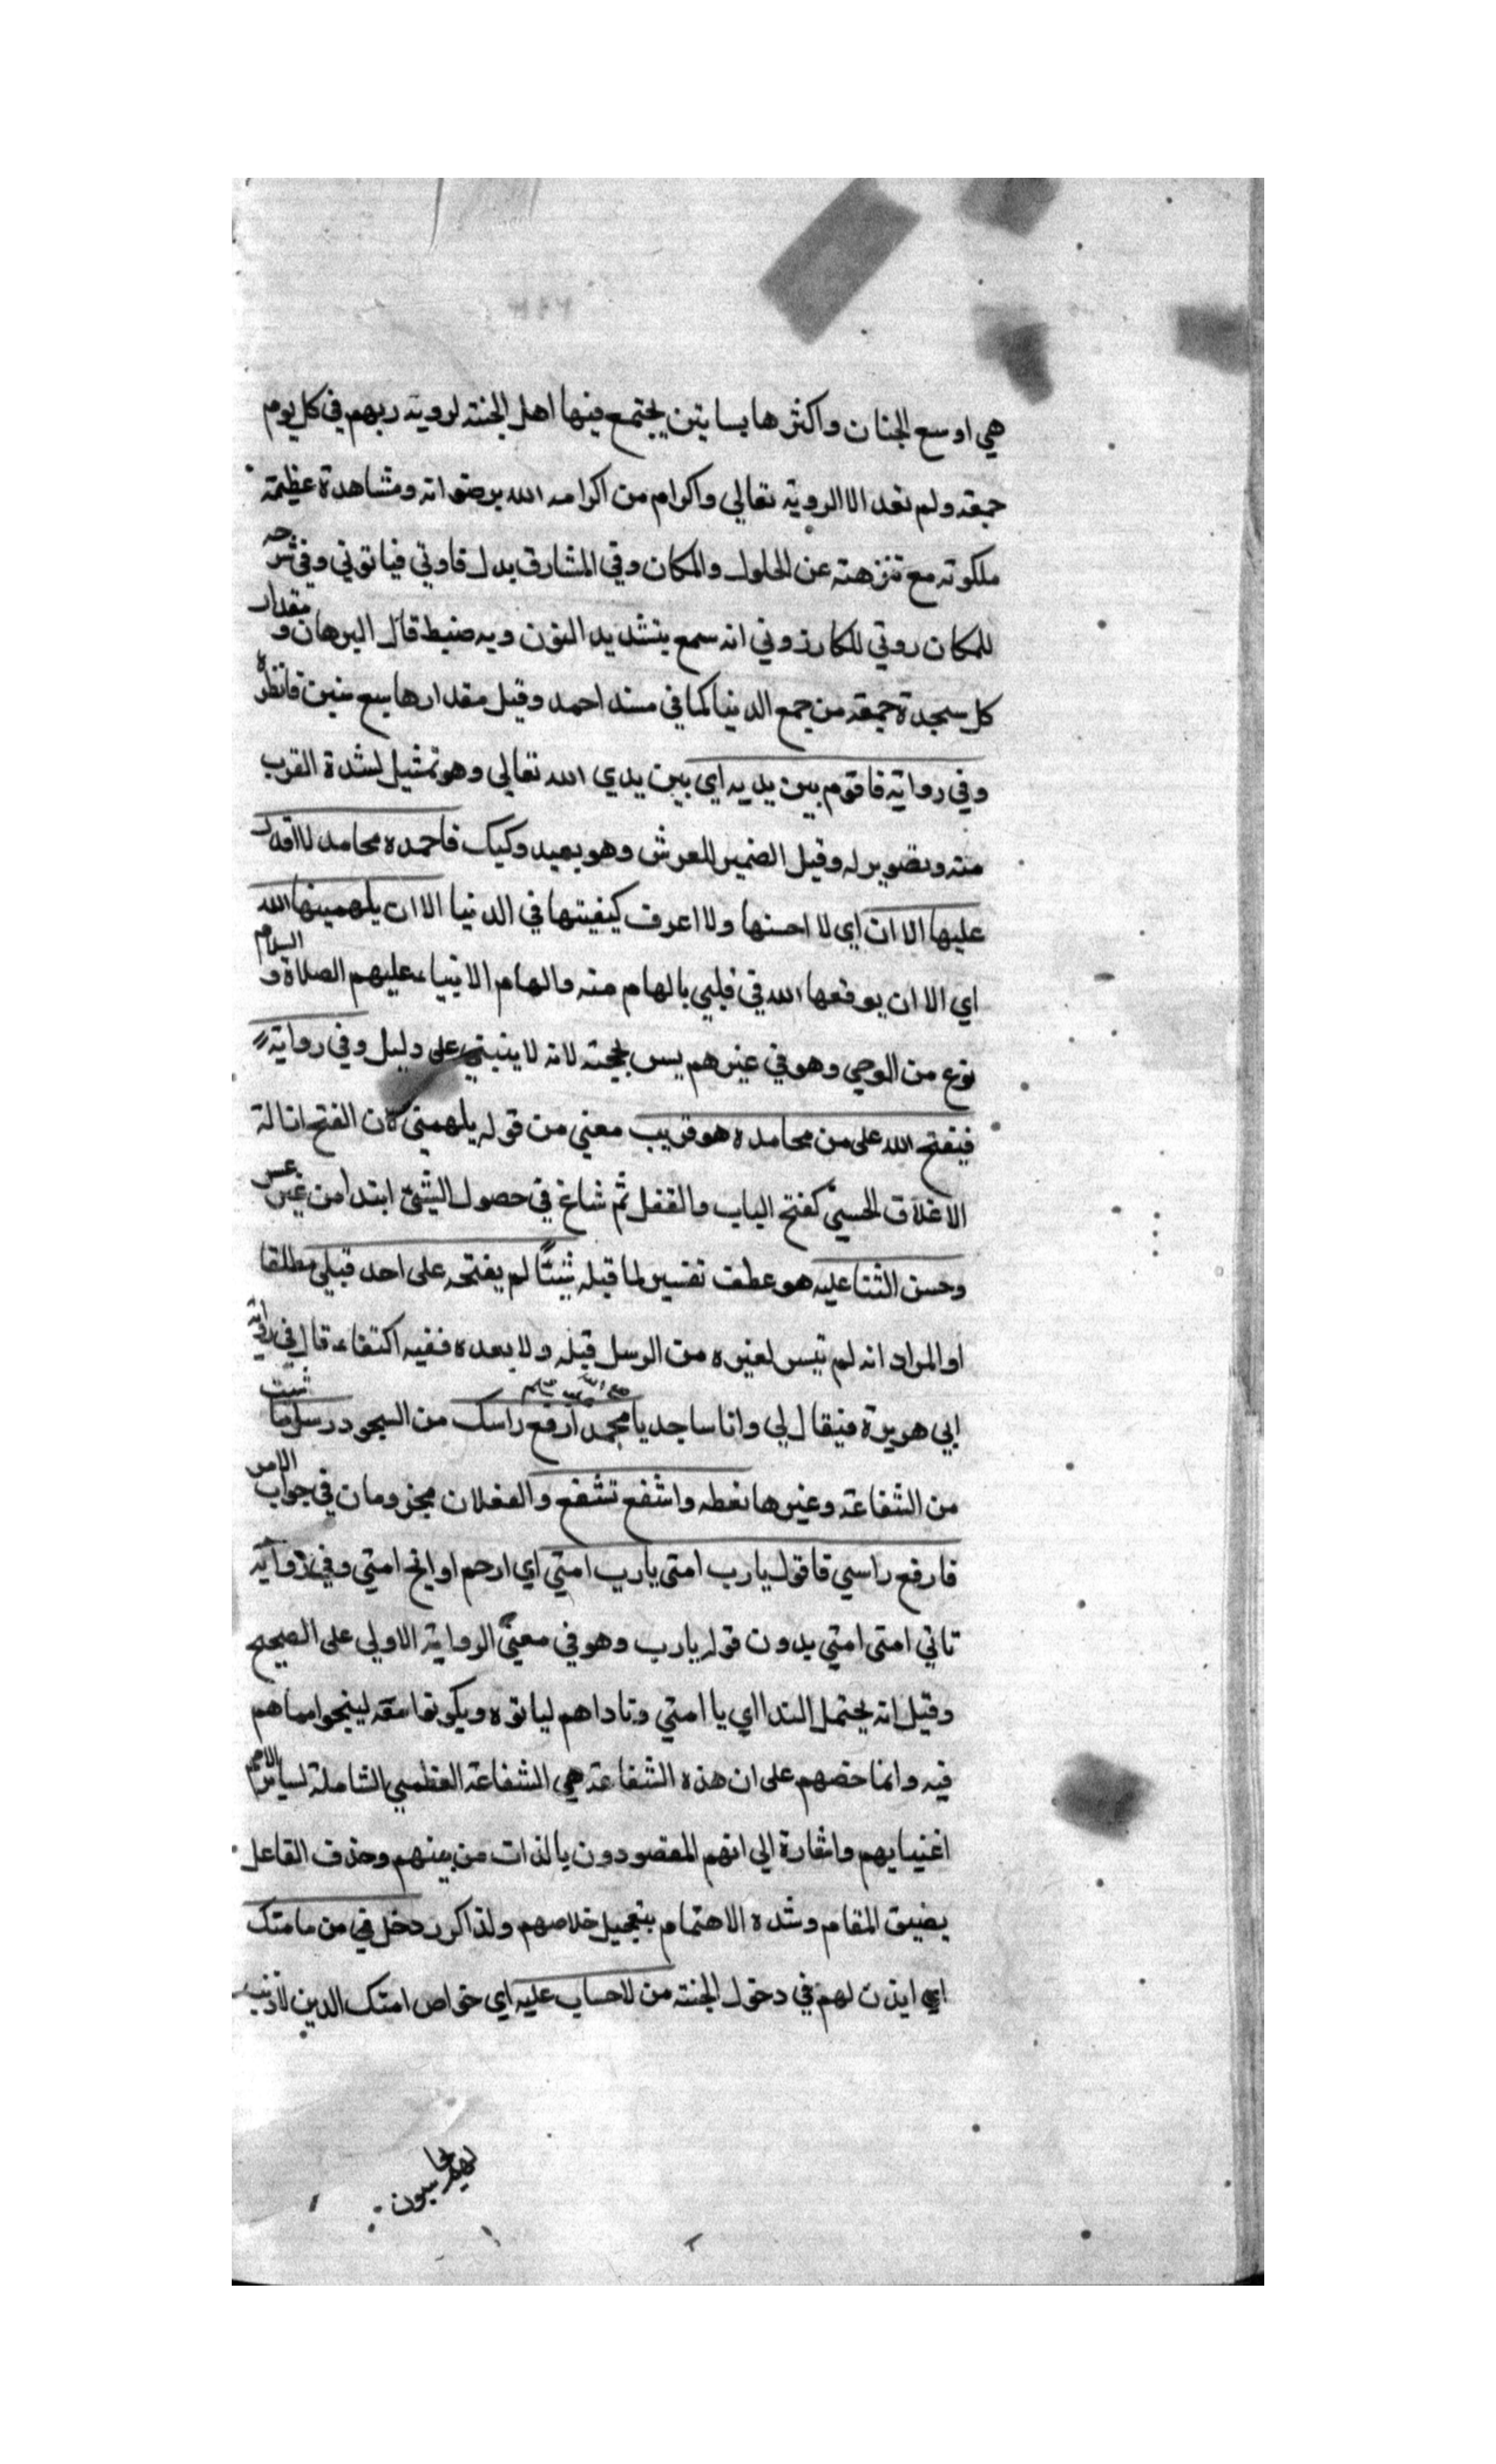 هي اوسع الجنان واكثرها بساتين يجتمع فيها اهل الجنة لروية ربهم في كل يوم
جمعة ولم تعد الا الروية تعالي واكرام من اكرامه الله برضوانه ومشاهدة عظمة
ملكوته مع تنزهته عن الحلول والمكان وفي المشارق بدل فاوتي فياتوني وفي شرحه
للمكان روتي للكارزوني انه سمع بتشديد النون وبه ضبط قال البرهان ومقدار
كل سجدة جمعة من جمع الدنيا كما في مسند احمد وقيل مقدارها سبع سنين فانظره
وفي رواية فاقوم بين يديه اي بين يدي الله تعالي وهو تمثيل لشدة القرب
منه وتصوير له وقيل الضمير للعرش وهو بعيد وكيك فاحمده محامد لا اقدر
عليها الا ان اي لا احسنها ولا اعرف كيفيتها في الدنيا الا ان يلهمينها الله
اي الا ان يوقعها الله في قلبي بالهام منه والهام الانبياء عليهم الصلاة والسلام
نوع من الوحي وهو في غيرهم يس بحجة لانه لا ينبني علي دليل وفي رواية
فيفتح الله علي من محامده هو قريب معني من قوله يلهمني لان الفتح ازالة
الاغلاق الحسي كفتح الباب والقفل ثم شاغ في حصول الشئ ابتدا من غير عسر
وحسن الثنا عليه هو عطف تفسير لما قبله شيئا لم يفتحه علي احد قبلي مطلقا
او المراد انه لم تيسر لغيره من الرسل قبله ولا بعده ففيه اكتفاء قال في رواية
ابي هويرة فيقال لي وانا ساجد يا محمد صلى الله عليه وسلم ارفع راسك من السجود رسل ما شيت
من الشفاعة وغيرها تعطه واشفع تشفع والفعلان مجزومان في جواب الامر
فارفع راسي فاقول يا رب امتي يا رب امتي اي ارحم او انج امتي وفي رواية
تاني امتي امتي بدون قوله يا رب وهو في معني الرواية الاولي علي الصحيح
وقيل انه يحتمل الندا اي يا امتي وناداهم لياتوه ويكونوا معه لينجوا مما هم
فيه وانما خصهم علي ان هذه الشفاعة هي الشفاعة العظمي الشاملة لساير الامم
اغنيابهم واشارة الي انهم المقصودون بالذات من بينهم وحذف الفاعل
يضيق المقام وشده الاهتمام بتعجيل خلاصهم ولذا كرر دخل في من مامتك
اي ايذن لهم في دخول الجنة من لا حساب عليه اي خواص امتك الدين لا ذنب
لهم يحاسبون